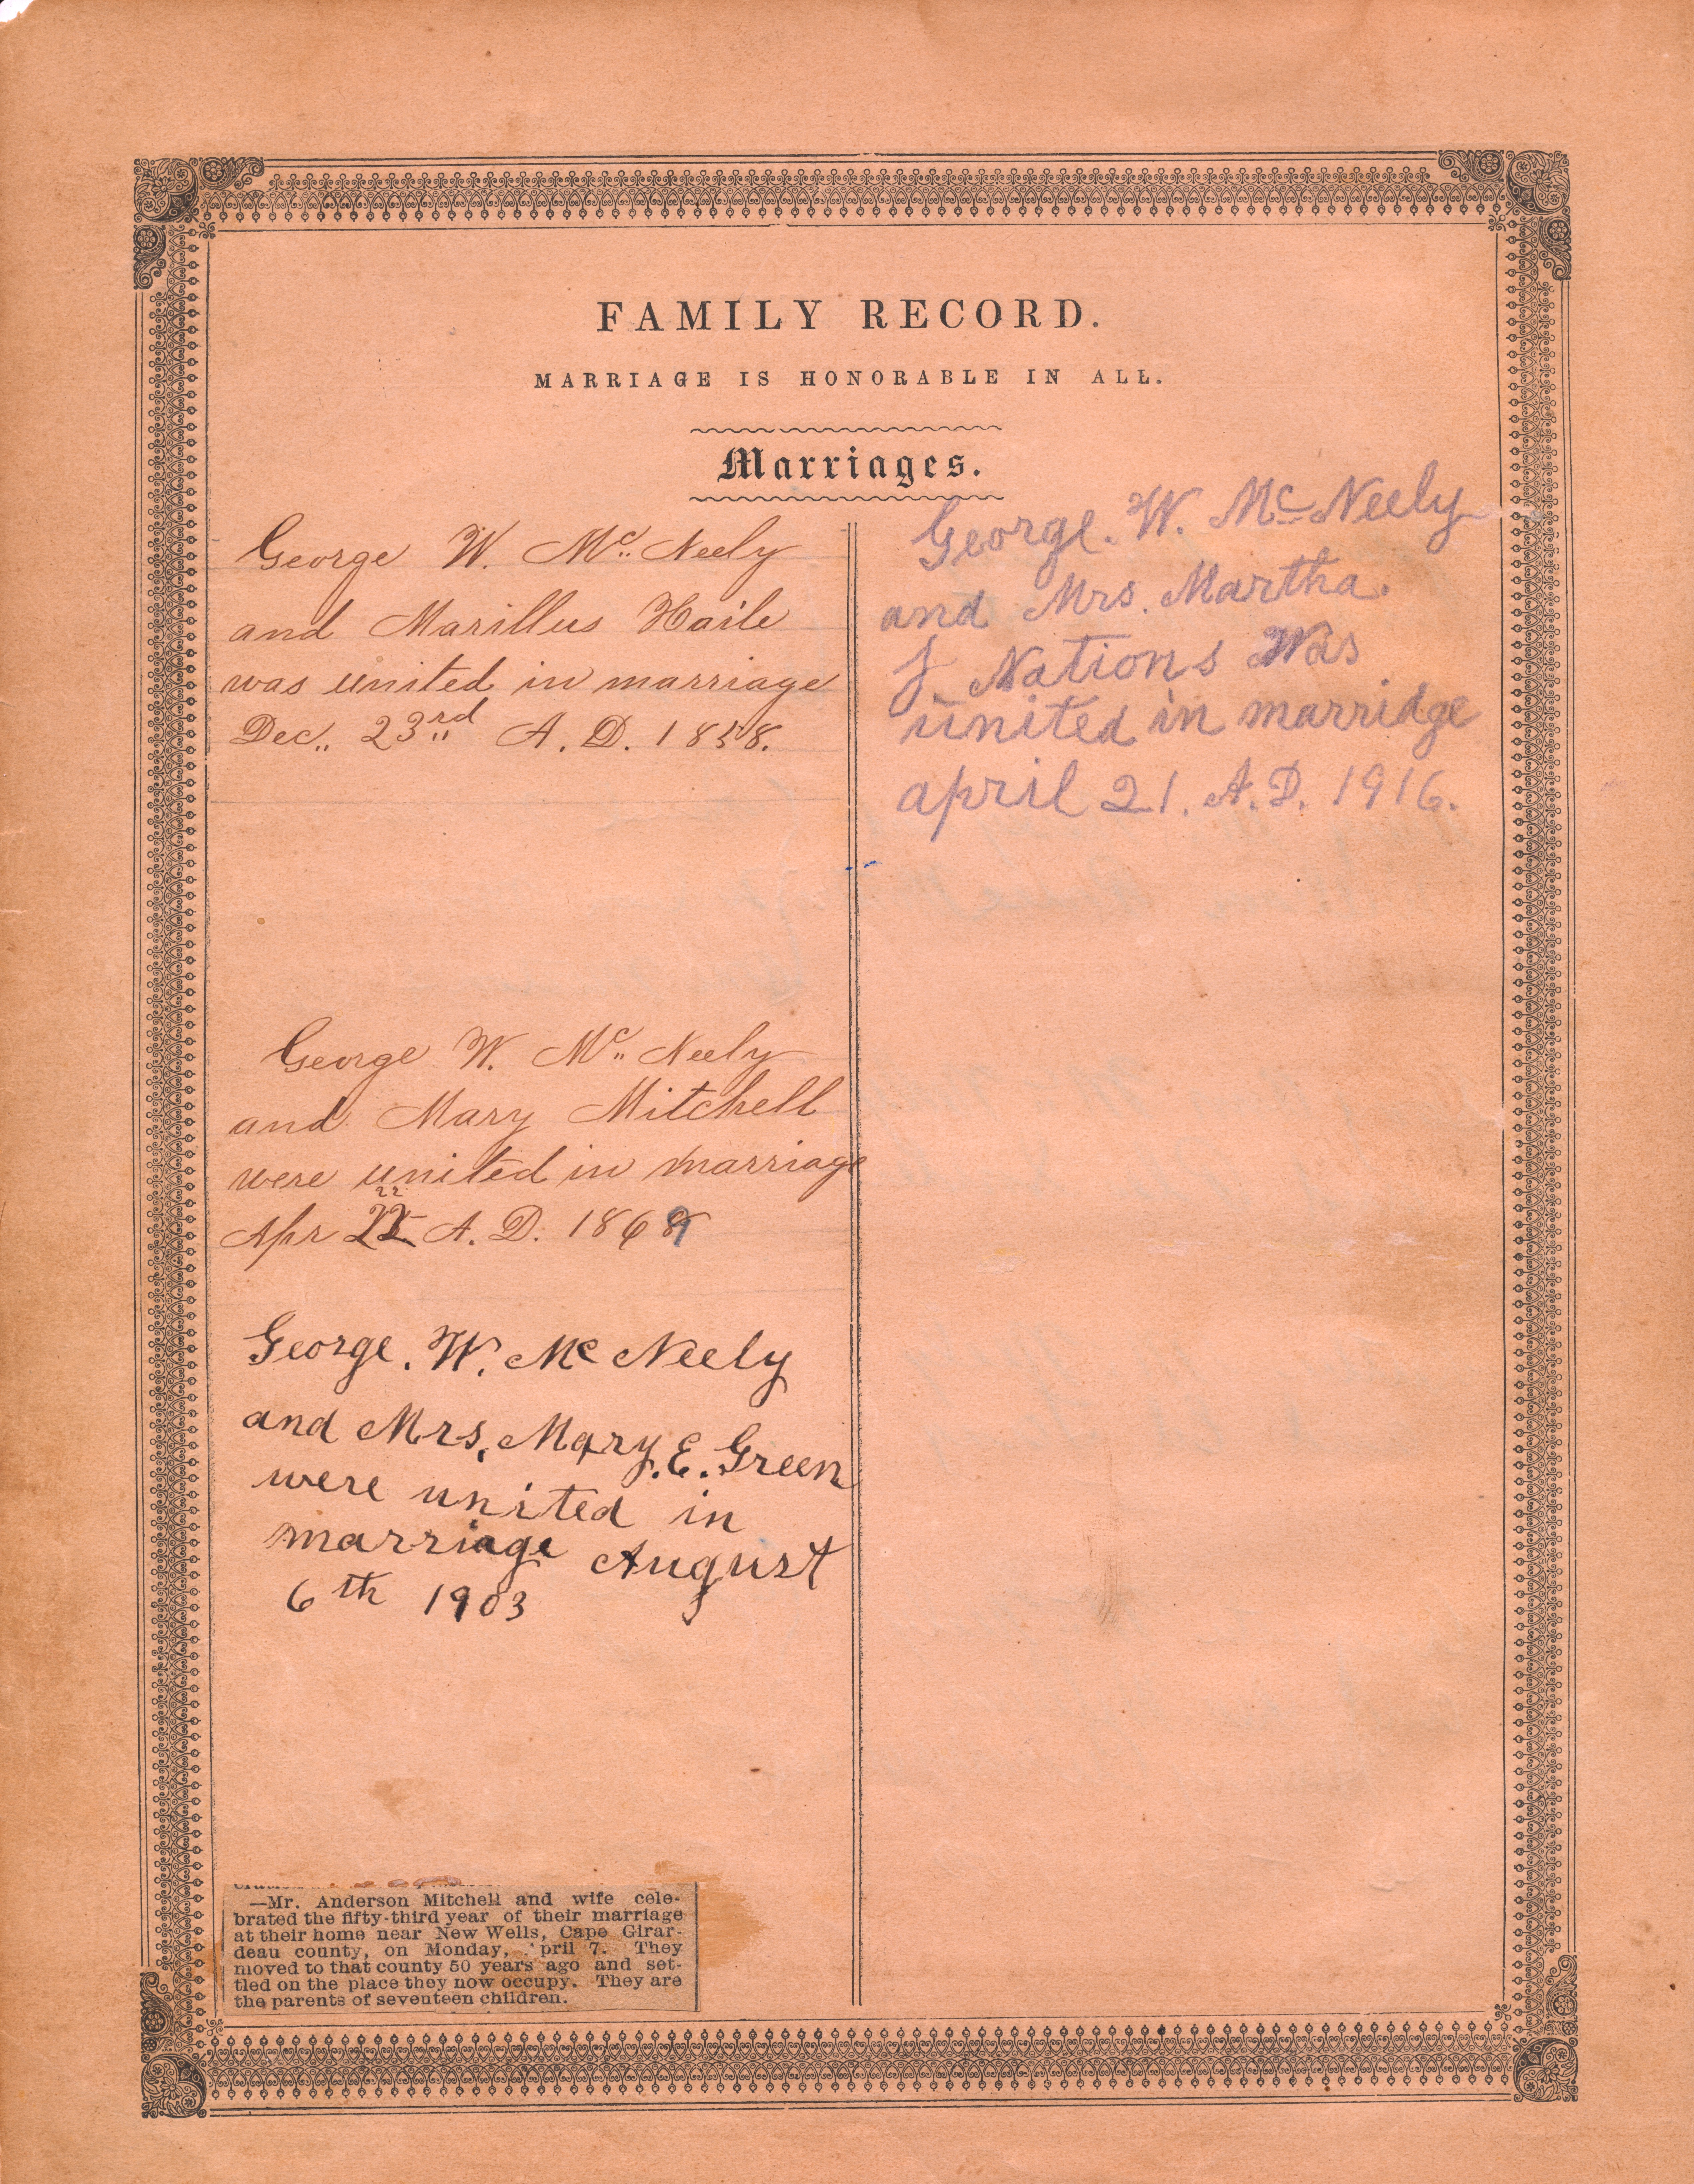 FAMILY RECORD.
MARRIAGE IS HONORABLE IN ALL.
Marriages.
George W. Mc. Neely
and Marillus Haile
was united in marriage
Dec. 23rd A. D. 1858.
George W. Mc. Neely
and Mary Mitchell
were united in marriage
22
Apr 22 A. D. 1869
George. W. Mc Neely
and Mrs. Mary. E. Green
were united in
marriage August
6th 1903
—Mr. Anderson Mitchell and wife cele-
brated the fifty-third year of their marriage
at their home near New Wells, Cape Girar-
deau county, on Monday, pril 7. They
moved to that county 50 years ago and set-
tled on the place they now occupy. They are
the parents of seventeen children.
George. W. Mc Neely
and Mrs. Martha.
J. Nations Was
united in marridge
april 21. A. D. 1916.